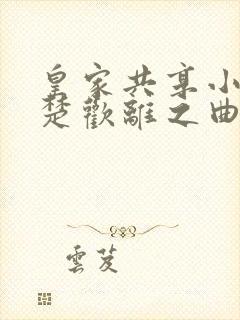 皇家共享小
楚歡離之曲
雲芨